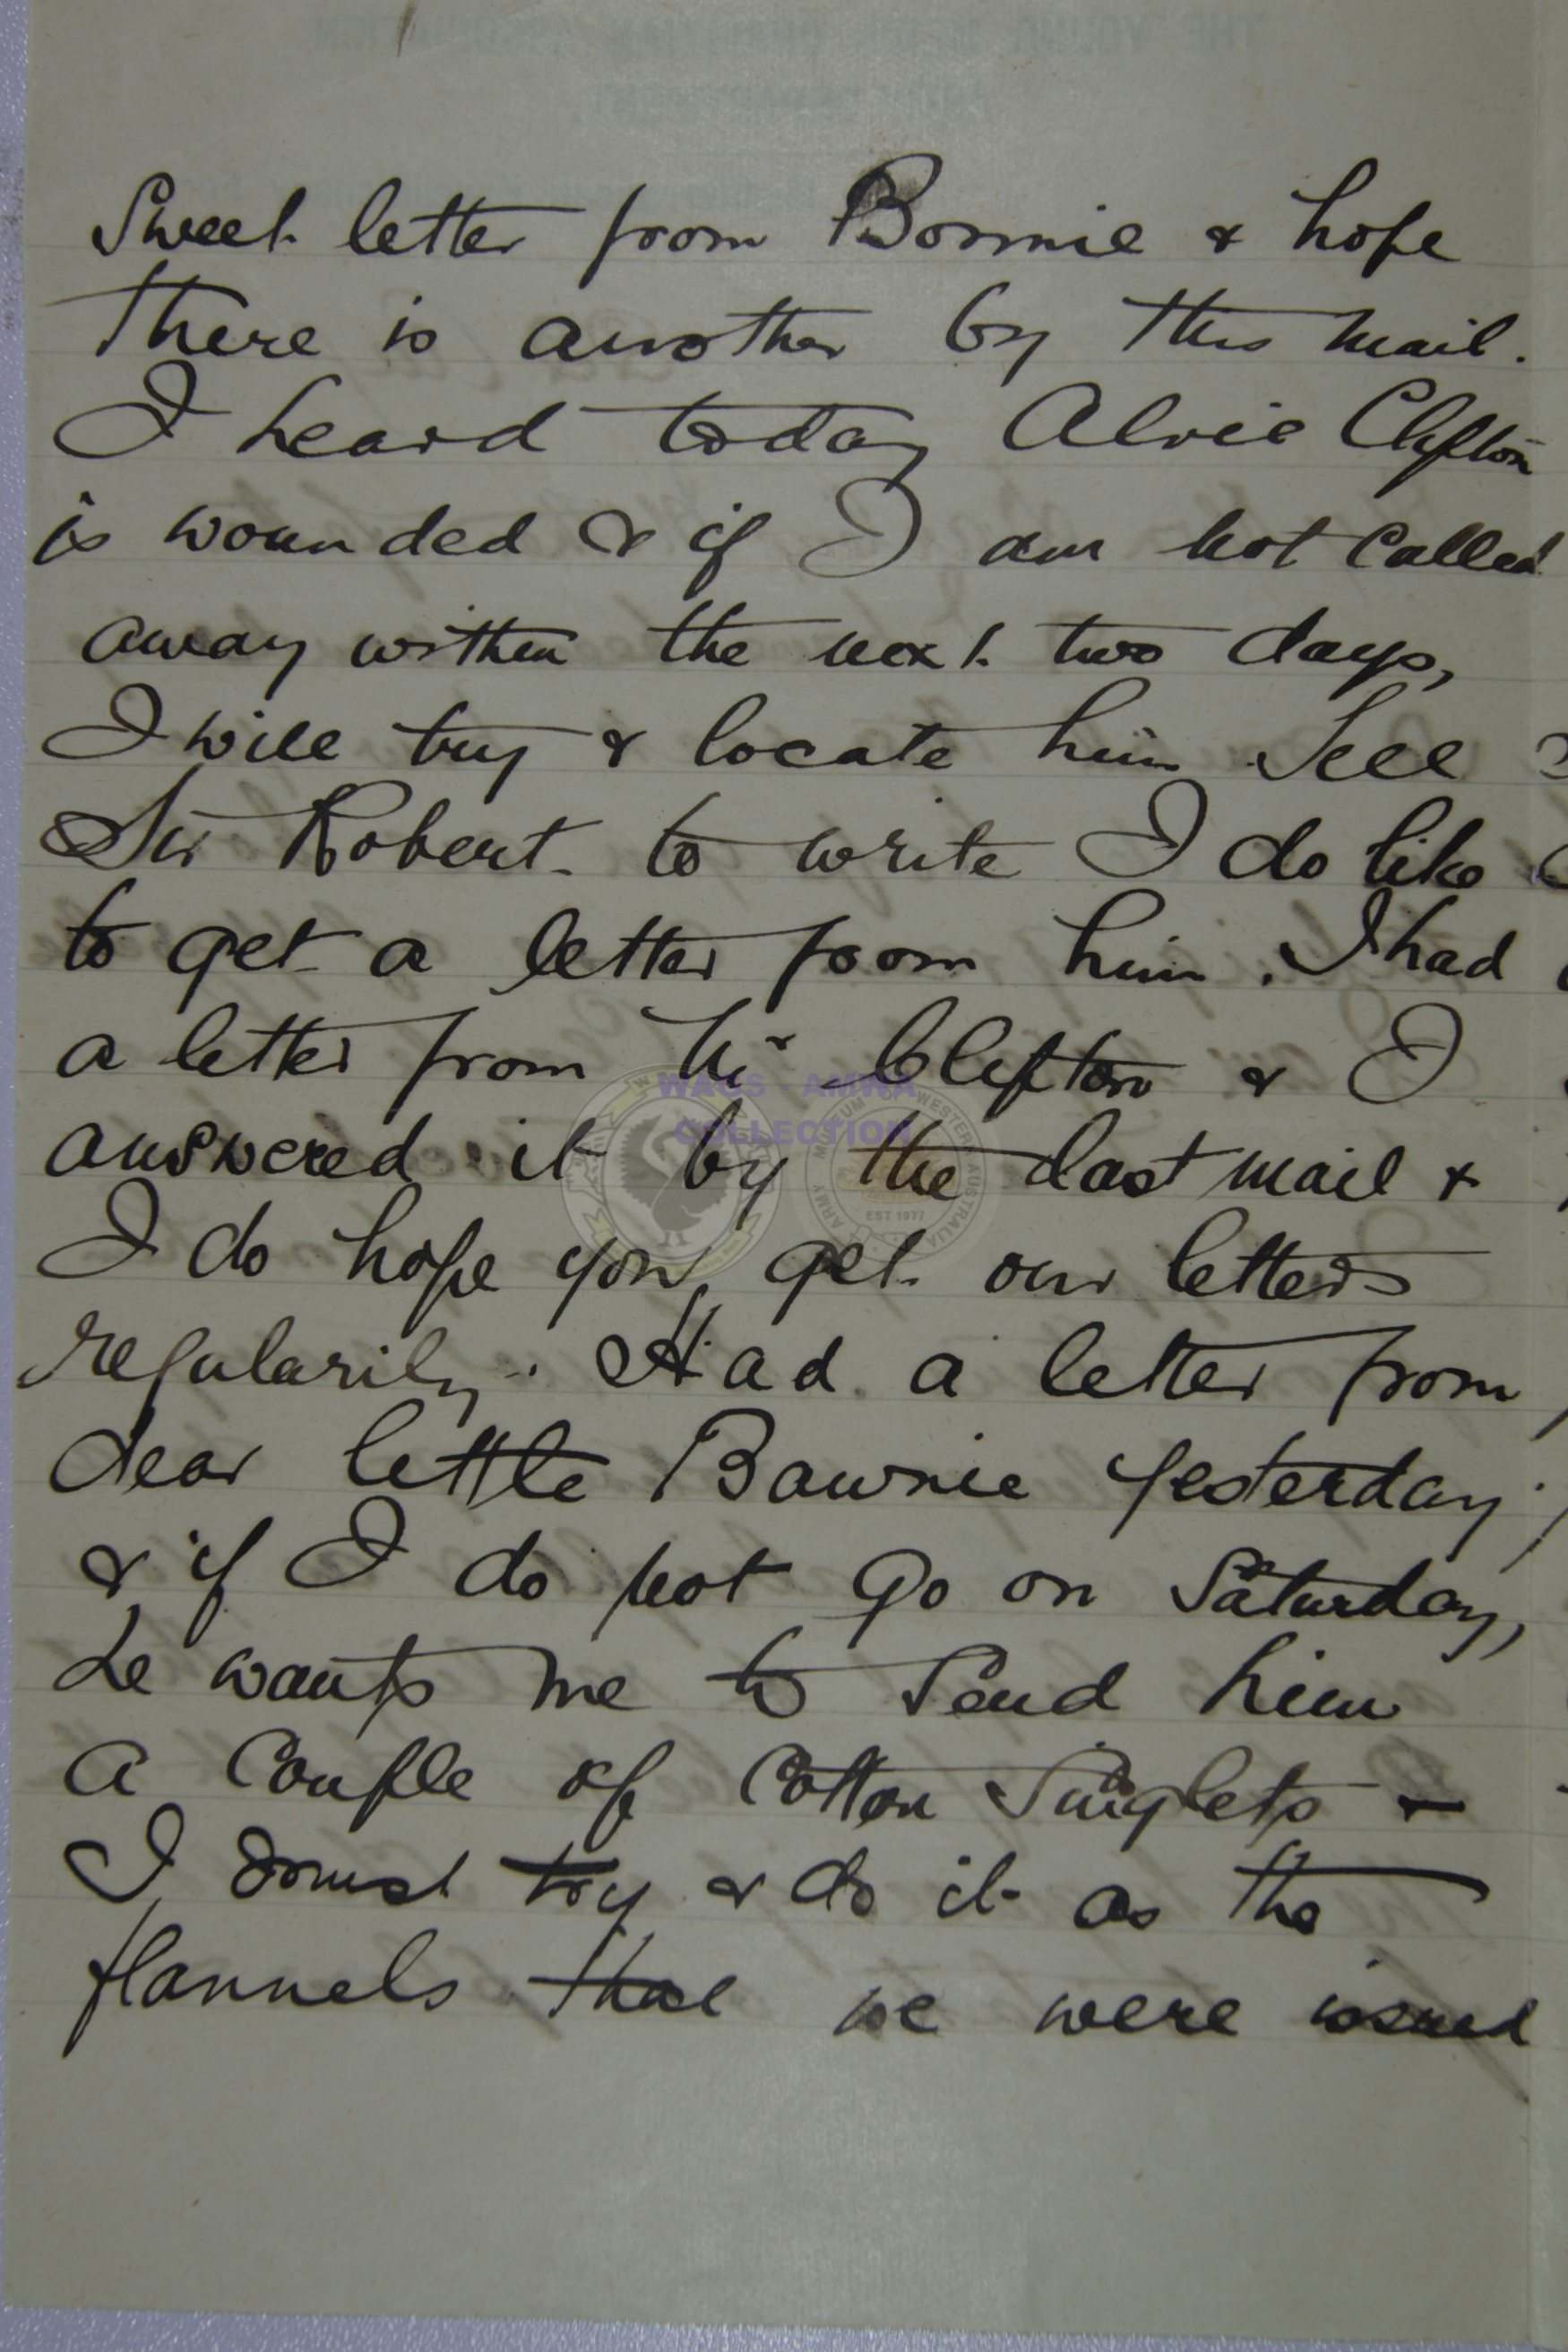 Sweet letter from Bonnie & hope
there is another by this mail.
I heard today Alvie Clifton
is wounded & if I am not called
away within the next two days,
I will try & locate him. Tell
Sir Robert to write I do like
to get a letter from him. I had
a letter from Mr Clifton & I
answered it by the last mail &
I do hope you get our letters
regularily. Had a letter from
dear little Bawnie yesterday,
& if I do not go on Saturday,
he wants me to send him
a couple of cotton singlets &
I must try & do it as the
flannels that we were issued
WAGS AMWA
COLLECTION
ARMY MUSEUM OF WESTERN AUSTRALIA
EST 1977